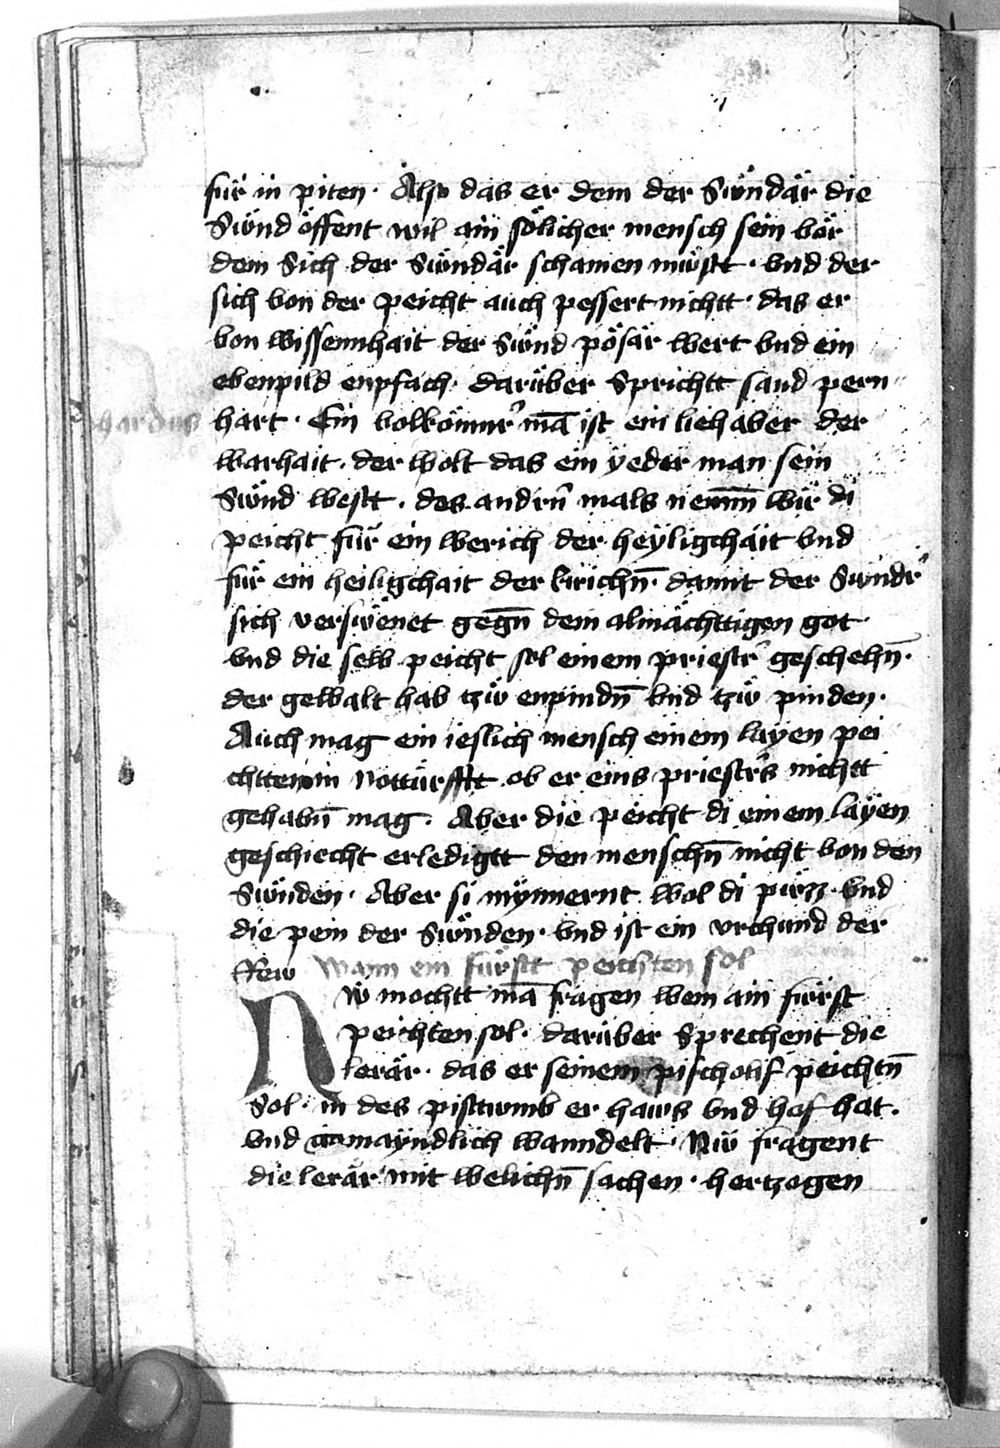 für in piten · Also das er dem der Sündär die
Sünd öffent wil ain sölicher mensch sein vor
dem Sich der Sündär schamen müstt · vnd der
sich von der peicht auch pessert nichtt · das er
von wissennhait der Sünd pösär wert vnd ein
ebenpild enpfach · darüber Sprichtt sand pern
hart · Ein volkömmr̄ mā ist ein liebhaber der
warhait · der wolt das ein yeder man sein
Sünd westt · des andrn̄ mals nemm̄ wir di
peicht für ein werich der heyligchäit vnd
für ein heiligchait der kirichn̄ · damit der Sündr̄
sich versüenet gegn̄ dem almächttigen got ·
vnd die selb peicht sol einem priestr̄ geschehn̄ ·
der gewalt hab tzü enpindn̄ vnd tzü pinden ·
Auch mag ein ieslich mensch einem layen pei
chtten in nottürfft ob er eins priestr̄s nichtt
gehabn̄ mag · Aber die peicht di einem layen
geschiecht erledigtt den menschn̄ nicht von den
Sünden · Aber si mynnernt wol di pürzz · vnd
die pein der Sünden · vnd ist ein vrchund der
Rew Wann ein fürstt peichten sol
Nw mochtt mā fragen wem ain fürst
peichten sol · darüber Sprechent die
lerär · das er seinem pischolif peichtn̄
Sol · in des pisttumb er haws vnd hof hat ·
vnd gemayndlich wanndelt · Nü fragent
die lerär mit welichn̄ sachen · hertzogen